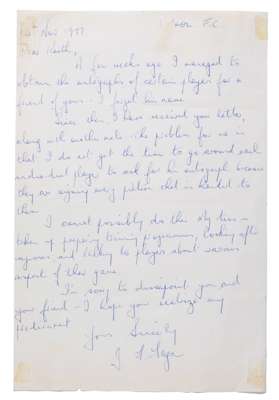 Nov 1977 F.C.
Dear Keith,
A few weeks ago I managed to
obtain the autographs of certain players for a
friend of yours - I forget his name
Since then I have received your letter,
along with another note. The problem for me is
that I do not get the time to go around each
individual player to ask for his autograph because
they are signing every picture that is handed to
them.
I cannot possibly do this my time
taken up preparing training programmes, looking after
injuries and talking to players about various
aspects of their game.
I'm sorry to disappoint you and
your friend - I hope you realize my
predicament
Yours Sincerely